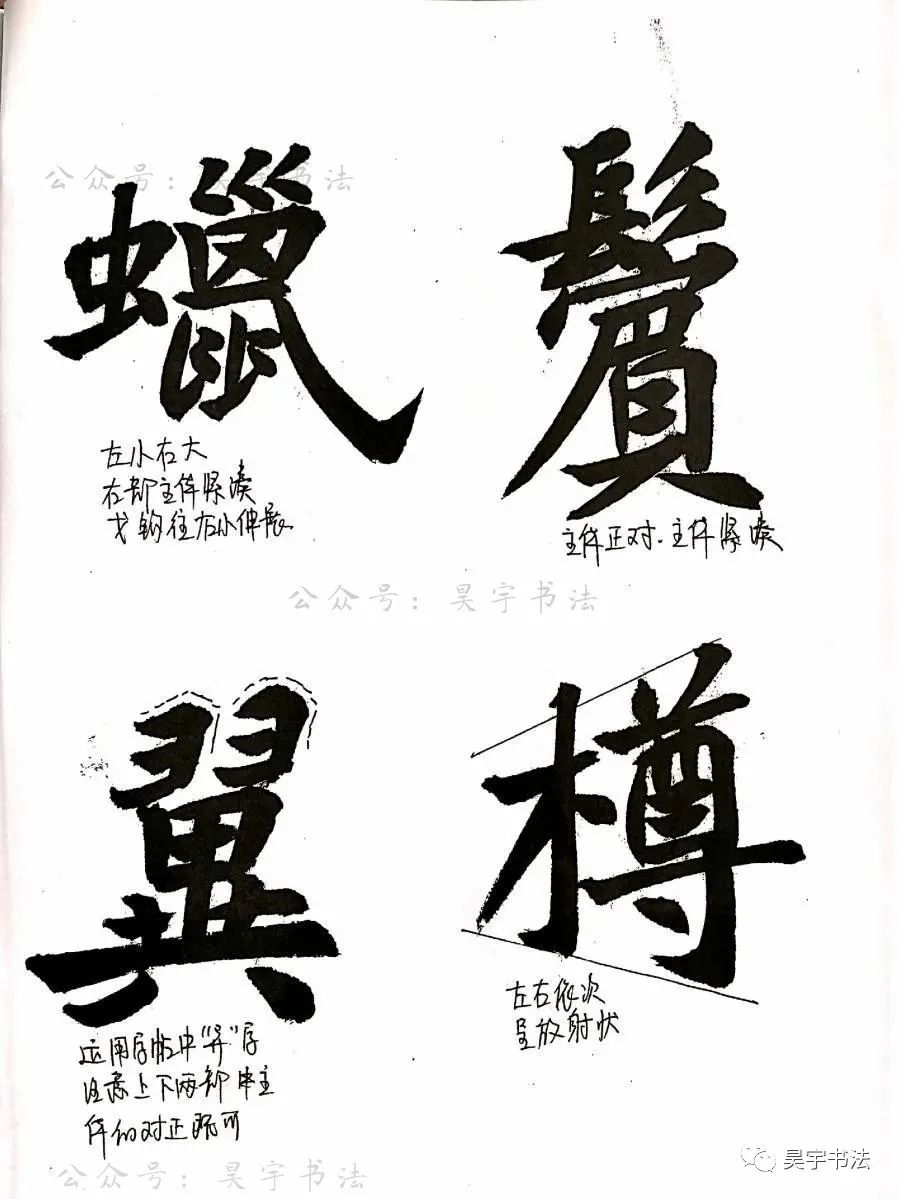 公众号：昊宇书法
蠟
左小右大
右部主体紧凑
戈钩往右小伸展
鬢
主体正对.主体紧凑
公众号：昊宇书法
翼
运用字帖中"异"字
注意上下两部中主
体的对正既可
樽
左右依次
呈放射状
公众号：昊宇书法
昊宇书法